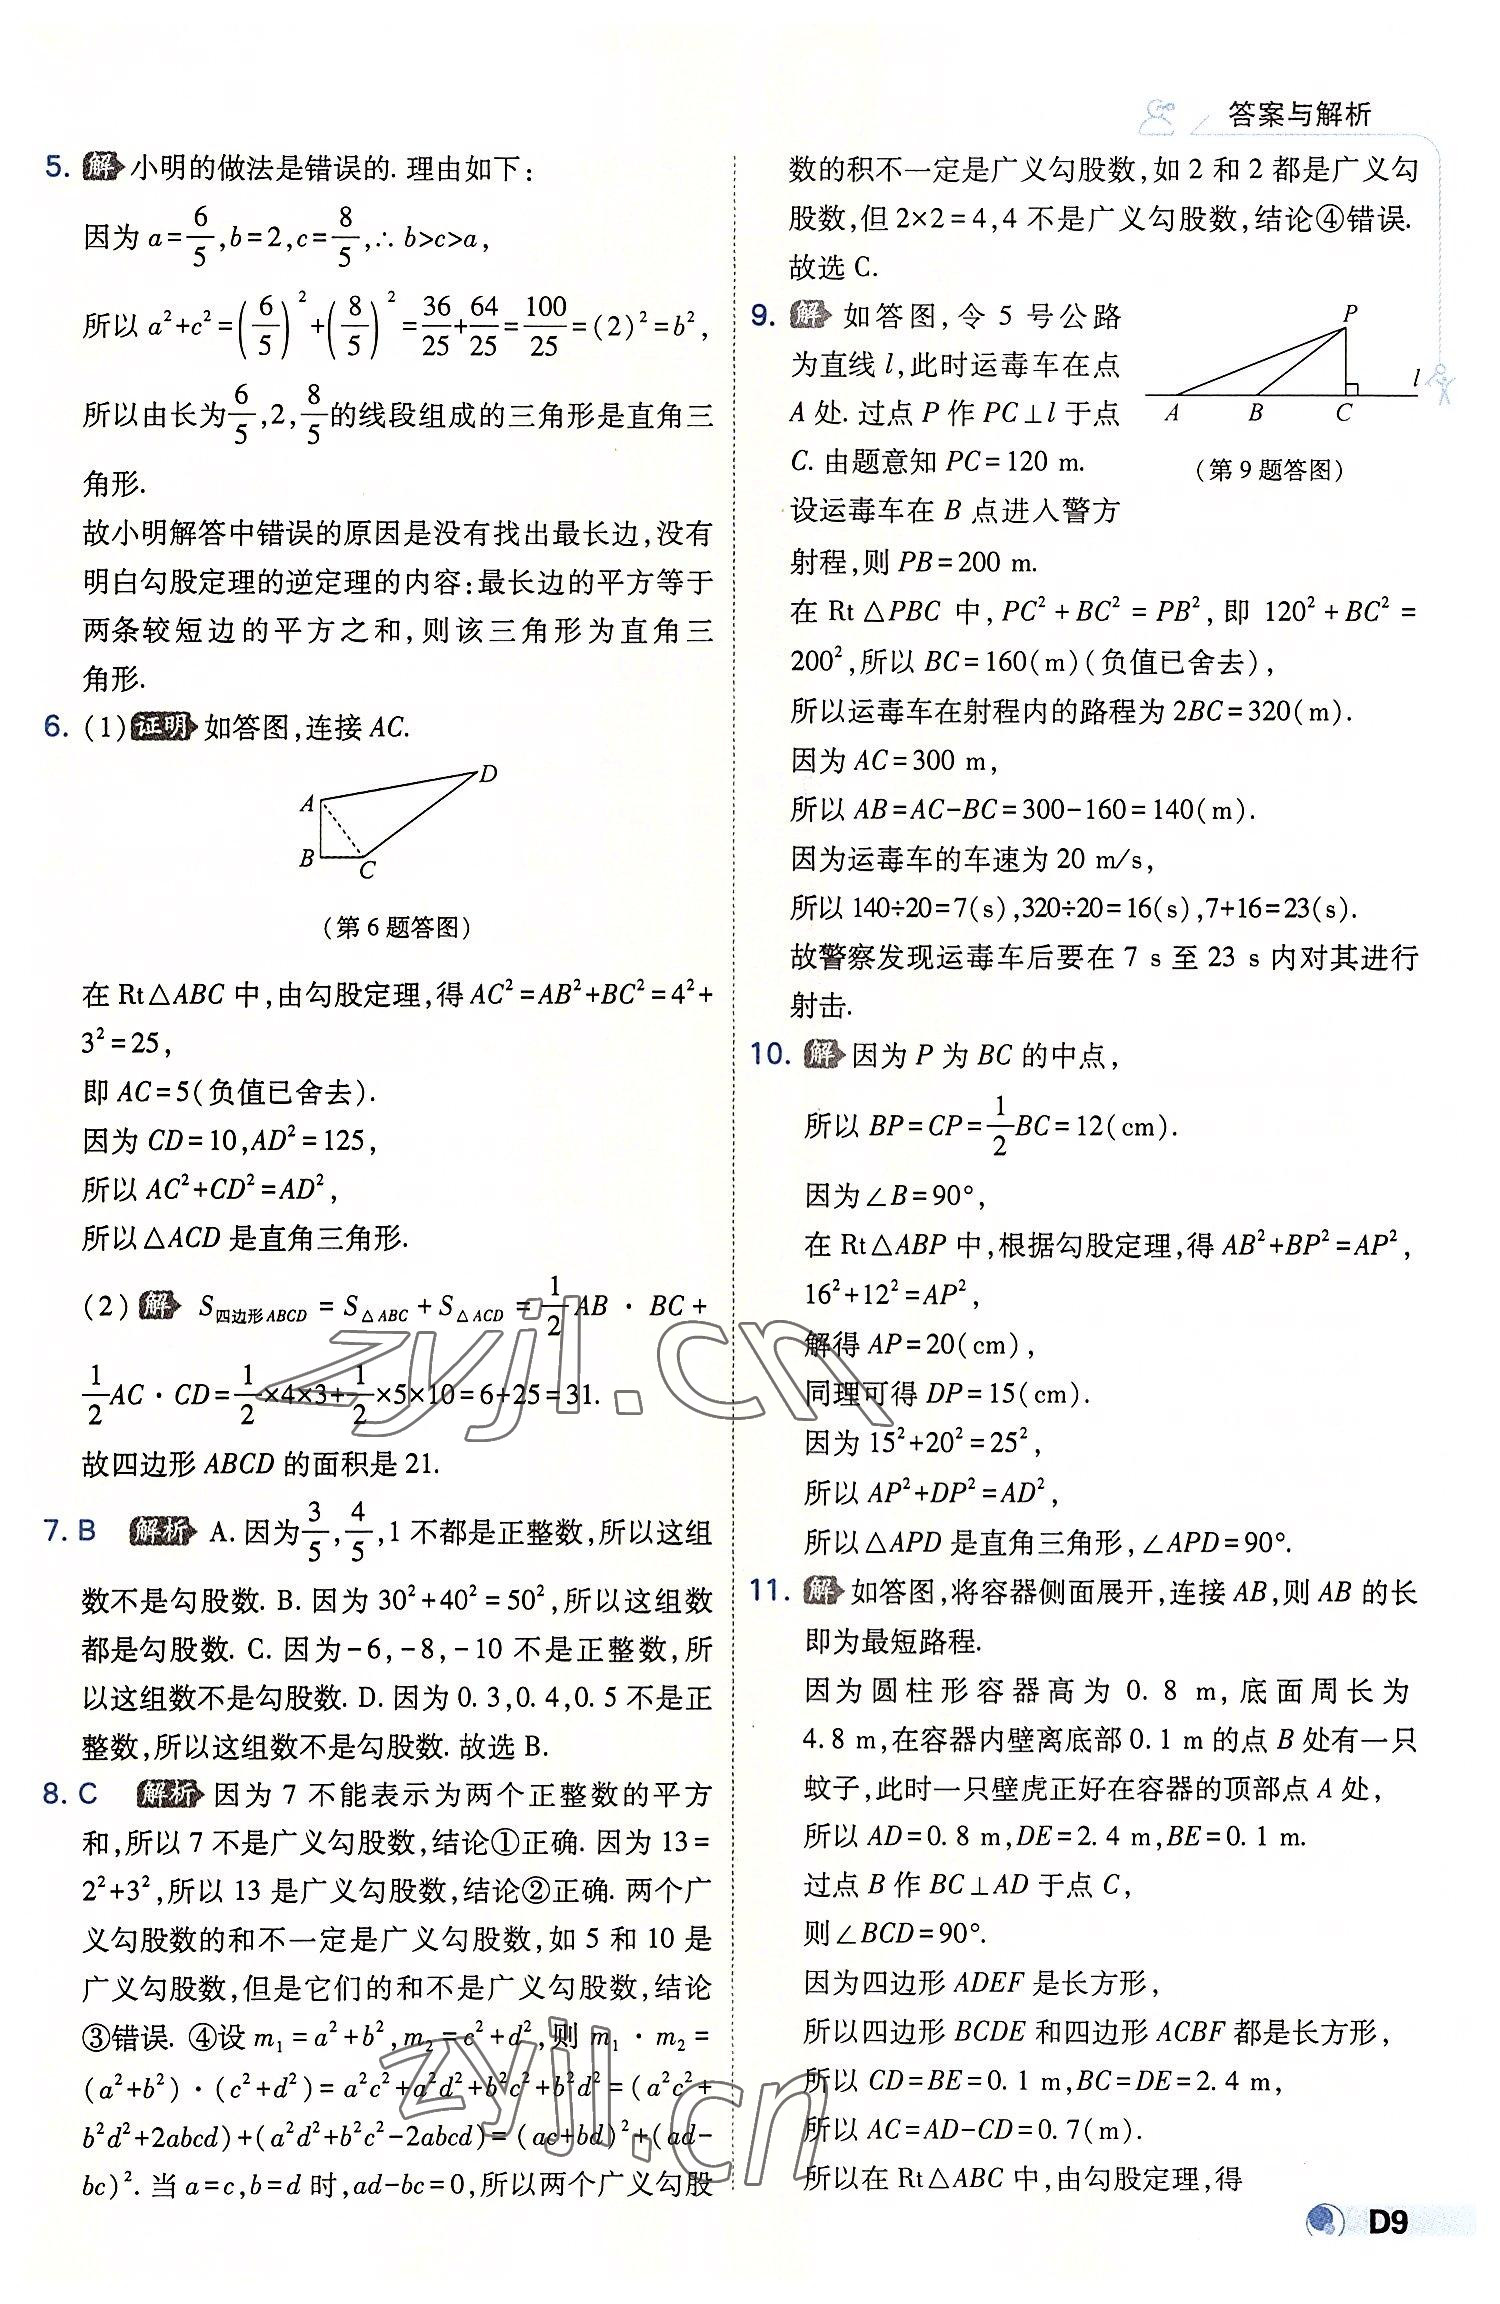 答案与解析
5. 解 小明的做法是错误的. 理由如下:
因为 a=6/5,b=2,c=8/5,∴ b>c>a,
所以 a²+c²=(6/5)²+(8/5)²=36/25+64/25=100/25=(2)²=b²,
所以由长为6/5,2,8/5的线段组成的三角形是直角三
角形.
故小明解答中错误的原因是没有找出最长边,没有
明白勾股定理的逆定理的内容:最长边的平方等于
两条较短边的平方之和,则该三角形为直角三
角形.
6. (1)证明 如答图,连接 AC.
D
A
B
C
(第 6 题答图)
在 Rt△ABC 中,由勾股定理,得 AC²=AB²+BC²=4²+
3²=25,
即 AC=5(负值已舍去).
因为 CD=10,AD²=125,
所以 AC²+CD²=AD²,
所以△ACD 是直角三角形.
(2) 解 S四边形ABCD=S△ABC+S△ACD=1/2AB·BC+
1/2AC·CD=1/2×4×3+1/2×5×10=6+25=31.
故四边形 ABCD 的面积是 21.
7. B 解析 A. 因为3/5,4/5,1 不都是正整数,所以这组
数不是勾股数. B. 因为 30²+40²=50²,所以这组数
都是勾股数. C. 因为-6,-8,-10 不是正整数,所
以这组数不是勾股数. D. 因为 0.3,0.4,0.5 不是正
整数,所以这组数不是勾股数. 故选 B.
8. C 解析 因为 7 不能表示为两个正整数的平方
和,所以 7 不是广义勾股数,结论①正确. 因为 13=
2²+3²,所以 13 是广义勾股数,结论②正确. 两个广
义勾股数的和不一定是广义勾股数,如 5 和 10 是
广义勾股数,但是它们的和不是广义勾股数,结论
③错误. ④设 m₁=a²+b²,m₂=c²+d²,则 m₁·m₂=
(a²+b²)·(c²+d²)=a²c²+a²d²+b²c²+b²d²=(a²c²+
b²d²+2abcd)+(a²d²+b²c²-2abcd)=(ac+bd)²+(ad-
bc)². 当 a=c,b=d 时,ad-bc=0,所以两个广义勾股
数的积不一定是广义勾股数,如 2 和 2 都是广义勾
股数,但 2×2=4,4 不是广义勾股数,结论④错误.
故选 C.
9. 解 如答图,令 5 号公路
为直线 l,此时运毒车在点
A 处. 过点 P 作 PC⊥l 于点
C. 由题意知 PC=120 m.
设运毒车在 B 点进入警方
P
l
A B C
(第 9 题答图)
射程,则 PB=200 m.
在 Rt△PBC 中,PC²+BC²=PB²,即 120²+BC²=
200²,所以 BC=160(m)(负值已舍去),
所以运毒车在射程内的路程为 2BC=320(m).
因为 AC=300 m,
所以 AB=AC-BC=300-160=140(m).
因为运毒车的车速为 20 m/s,
所以 140÷20=7(s),320÷20=16(s),7+16=23(s).
故警察发现运毒车后要在 7 s 至 23 s 内对其进行
射击.
10. 解 因为 P 为 BC 的中点,
所以 BP=CP=1/2BC=12(cm).
因为∠B=90°,
在 Rt△ABP 中,根据勾股定理,得 AB²+BP²=AP²,
16²+12²=AP²,
解得 AP=20(cm),
同理可得 DP=15(cm).
因为 15²+20²=25²,
所以 AP²+DP²=AD²,
所以△APD 是直角三角形,∠APD=90°.
11. 解 如答图,将容器侧面展开,连接 AB,则 AB 的长
即为最短路程.
因为圆柱形容器高为 0.8 m,底面周长为
4.8 m,在容器内壁离底部 0.1 m 的点 B 处有一只
蚊子,此时一只壁虎正好在容器的顶部点 A 处,
所以 AD=0.8 m,DE=2.4 m,BE=0.1 m.
过点 B 作 BC⊥AD 于点 C,
则∠BCD=90°.
因为四边形 ADEF 是长方形,
所以四边形 BCDE 和四边形 ACBF 都是长方形,
所以 CD=BE=0.1 m,BC=DE=2.4 m,
所以 AC=AD-CD=0.7(m).
所以在 Rt△ABC 中,由勾股定理,得
D9
zyjl.cn
zyjl.cn